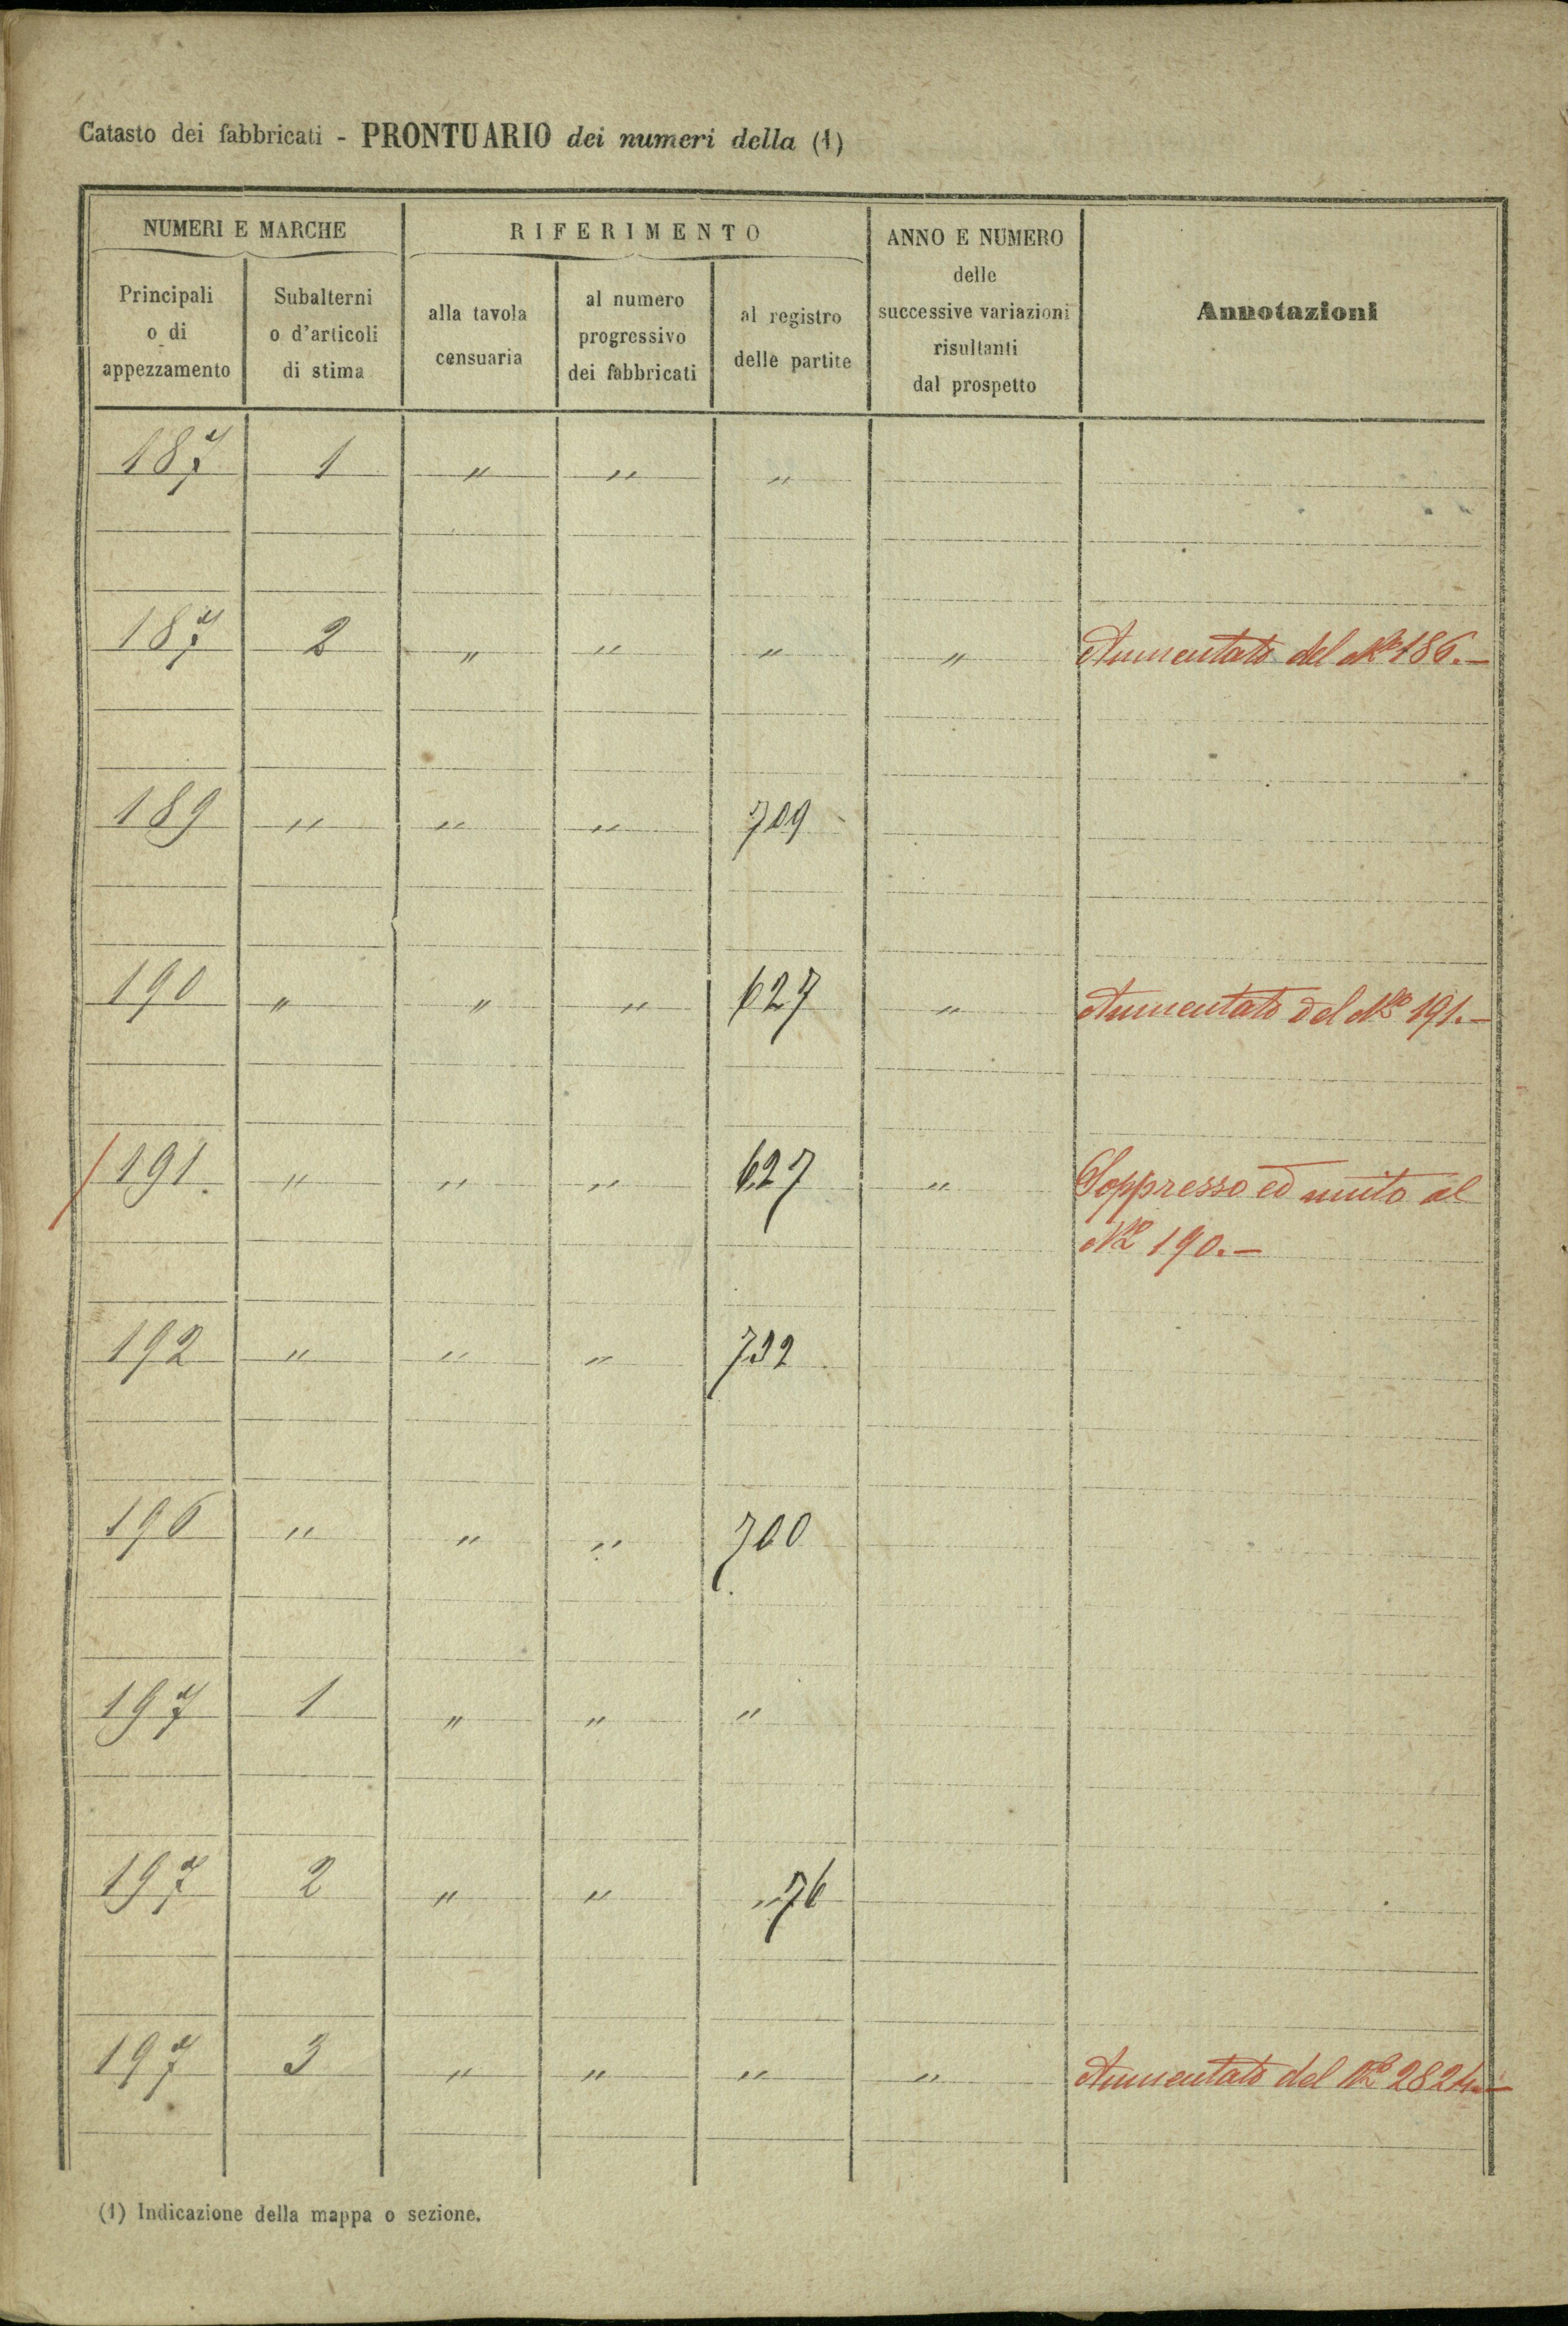 Catasto dei fabbricati - PRONTUARIO dei numeri della (1)
NUMERI E MARCHE
RIFERIMENTO
ANNO E NUMERO
delle
successive variazioni
risultanti
dal prospetto
Annotazioni
Principali
o di
appezzamento
Subalterni
o d'articoli
di stima
alla tavola
censuaria
al numero
progressivo
dei fabbricati
al registro
delle partite
187 1 " " "
187 2 " " " " Aumentato del No 186.-
189 " " " 709
190 " " " 627 " Aumentato del No 191.-
191. " " " 627 " Soppresso ed unito al
No 190.-
192 " " " 732
196 " " " 700
197 1 " " "
197 2 " " " 76
197 3 " " " " Aumentato del No 2824.-
(1) Indicazione della mappa o sezione.